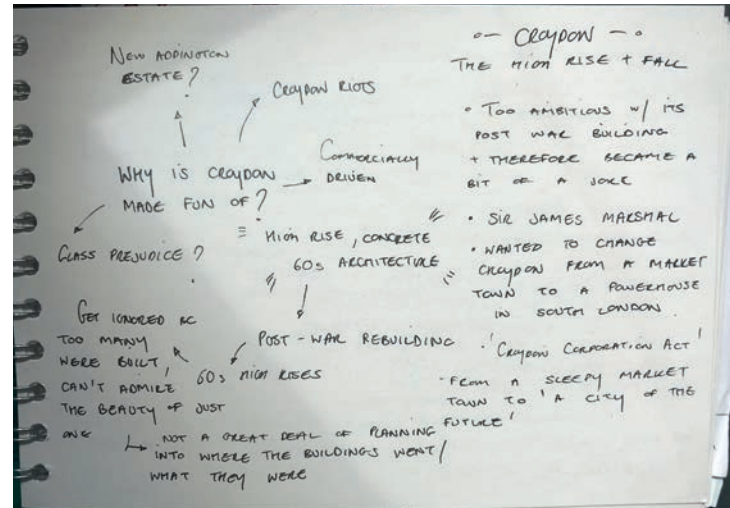 NEW ADDINGTON
ESTATE?
CROYDON RIOTS
WHY IS CROYDON
MADE FUN OF?
COMMERCIALLY
DRIVEN
CLASS PREJUDICE?
HIGH RISE, CONCRETE
60s ARCHITECTURE
POST-WAR REBUILDING
60s HIGH RISES
GET IGNORED BC
TOO MANY
WERE BUILT,
CAN'T ADMIRE
THE BEAUTY OF JUST
ONE
NOT A GREAT DEAL OF PLANNING
INTO WHERE THE BUILDINGS WENT/
WHAT THEY WERE
CROYDON
THE HIGH RISE + FALL
• TOO AMBITIOUS W/ ITS
POST WAR BUILDING
+ THEREFORE BECAME A
BIT OF A JOKE
• SIR JAMES MARSHAL
• WANTED TO CHANGE
CROYDON FROM A MARKET
TOWN TO A POWERHOUSE
IN SOUTH LONDON.
• 'CROYDON CORPORATION ACT'
• FROM A SLEEPY MARKET
TOWN TO 'A CITY OF THE
FUTURE'